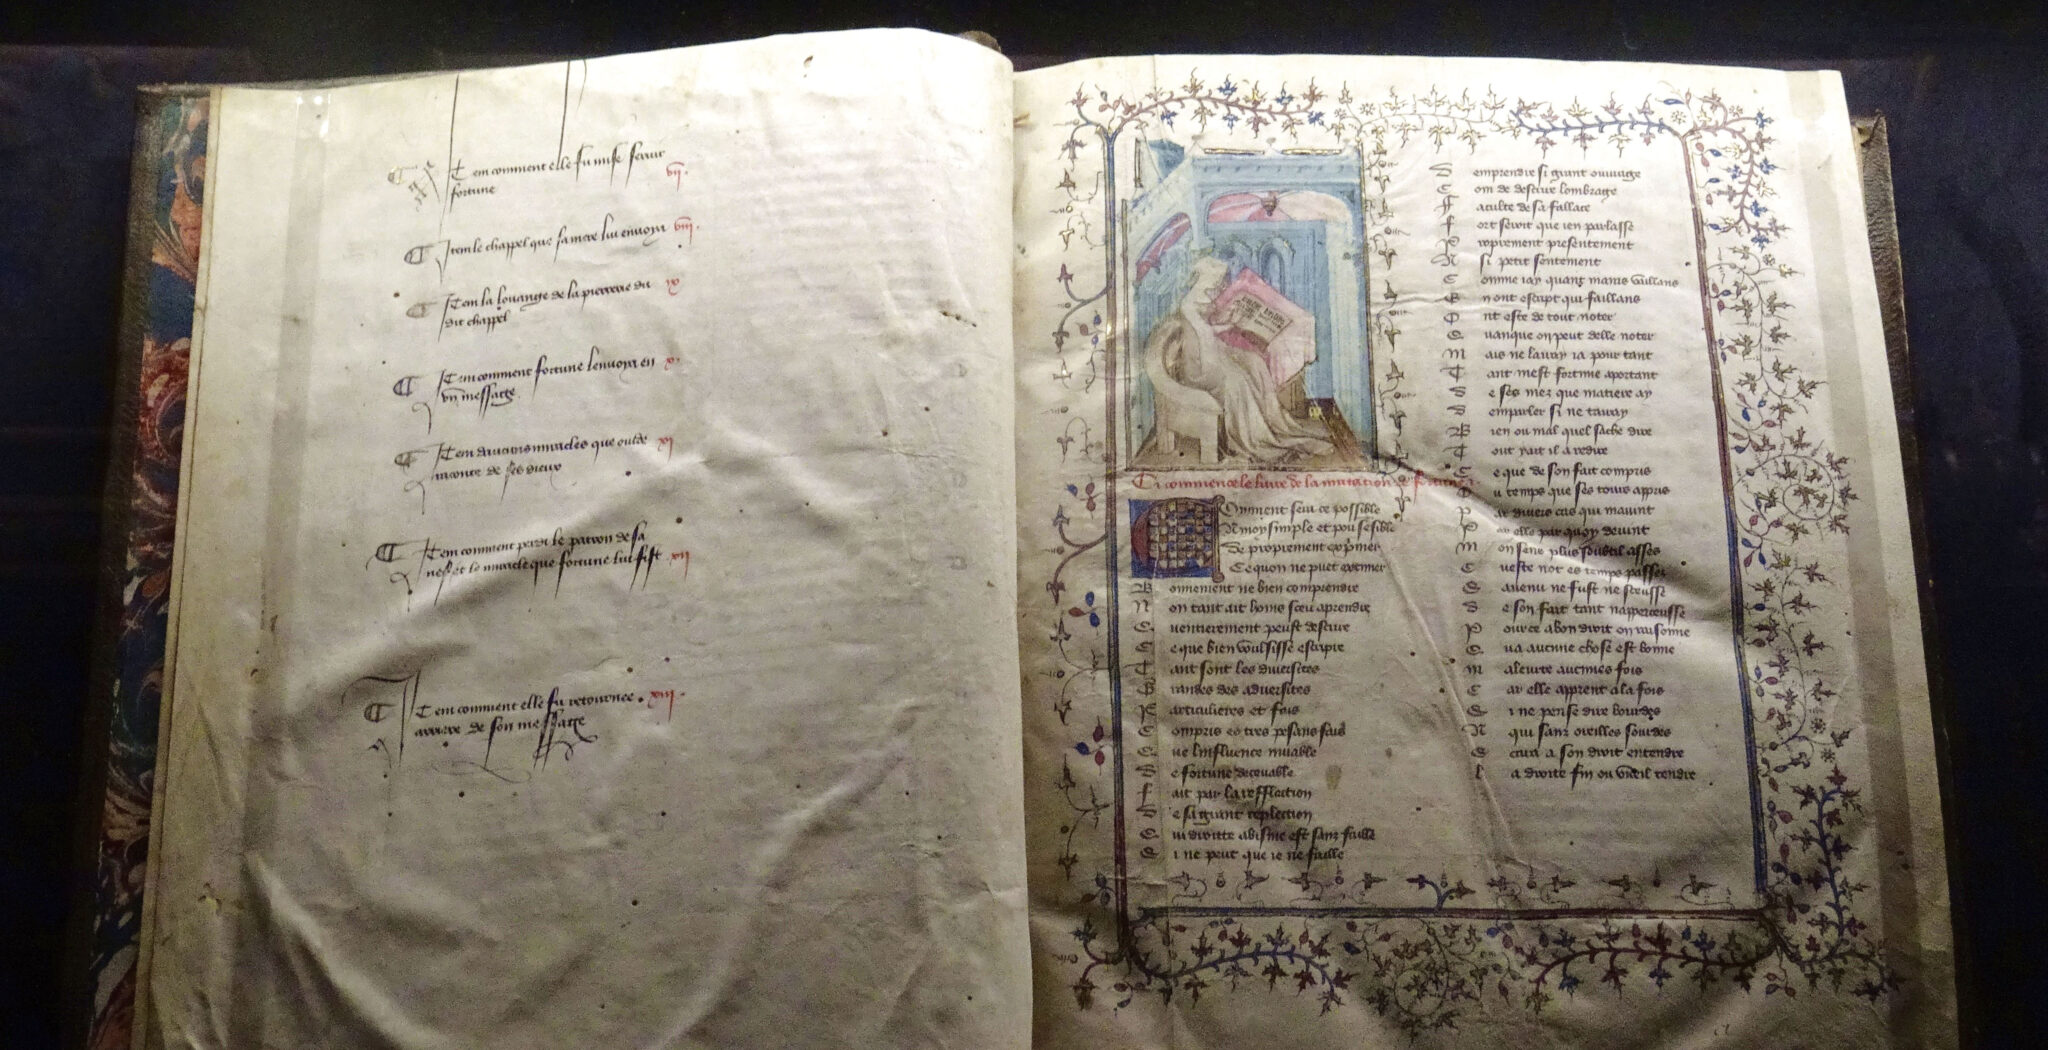 Item comment elle fu mise servir vii.
fortune
Item le chappel que sa mere lui envoya viii.
Item la louange de la pierrerie du ix
dit chappel
Item comment fortune l envoya en x.
un message.
Item daucuns miracles que ovide xi
raconte de ses dieux
Item comment perdi le patron de sa
nef et le miracle que fortune lui fist xii
Item comment elle fu retournee . xiii .
arriere de son message
Ci commence le livre de la mutation de fortune
Comment sera ce possible
A moy simple et pou sensible
De proprement exprimer
Ce quon ne puet extimer
Bonnement ne bien comprendre
Non tant ait homs sceu aprendre
Quentierement peust descrire
Ce que bien voulsisse escripre
Tant sont les diversites
Grandes des adversites
Particulieres et fois
Compris es tres pesans fais
Que linfluence muable
De fortune decevable
Fait par la refflection
De sa grant replection
Qui droitte abisme est sanz faille
Si ne peut que je ne faille
Demprendre si grant ouvrage
Com de descrire lombrage
Faculte de sa fallace
Fort seroit que jen parlasse
Proprement presentement
A si petit sentement
Comme jay quant mains vaillans
En ont escript qui faillans
Ont este de tout noter
Quanque on peut delle noter
Mais ne lauray ja pour tant
Tant mest fortune aportant
De ses mez que matiere ay
Demparler si ne tairay
Bien ou mal quel sache dire
Tout y ait il a redire
Ce que de son fait compris
Du temps que ses tours appris
Par divers cas qui mavint
Par elle par quoy devint
Mon sens plus soubtil asses
Ceste not es temps passes
Savenu ne fust ne sceusse
De son fait tant napperceusse
Pource a bon droit on raisonne
Qua aucune chose est bonne
Maleurte aucunes fois
Car elle apprent a la fois
Si ne pense dire bourdes
N qui sanz oreilles sourdes
a son droit entendre
La droite fin ou vueil tendre